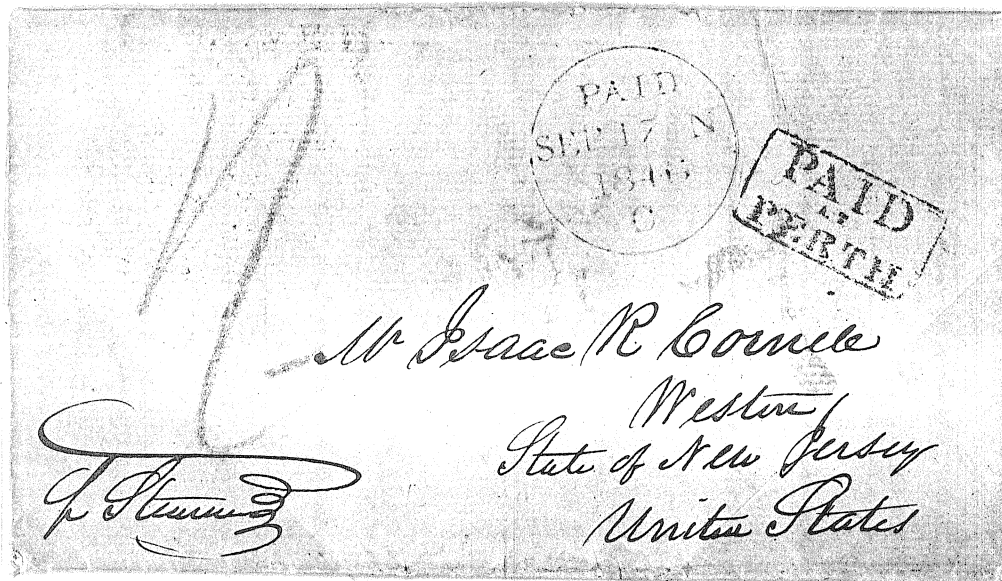 PAID
SEP 17 N
1846
C
PAID
AT
PERTH
Mr Isaac R Cornell
Weston
State of New Jersey
United States
p Steamer